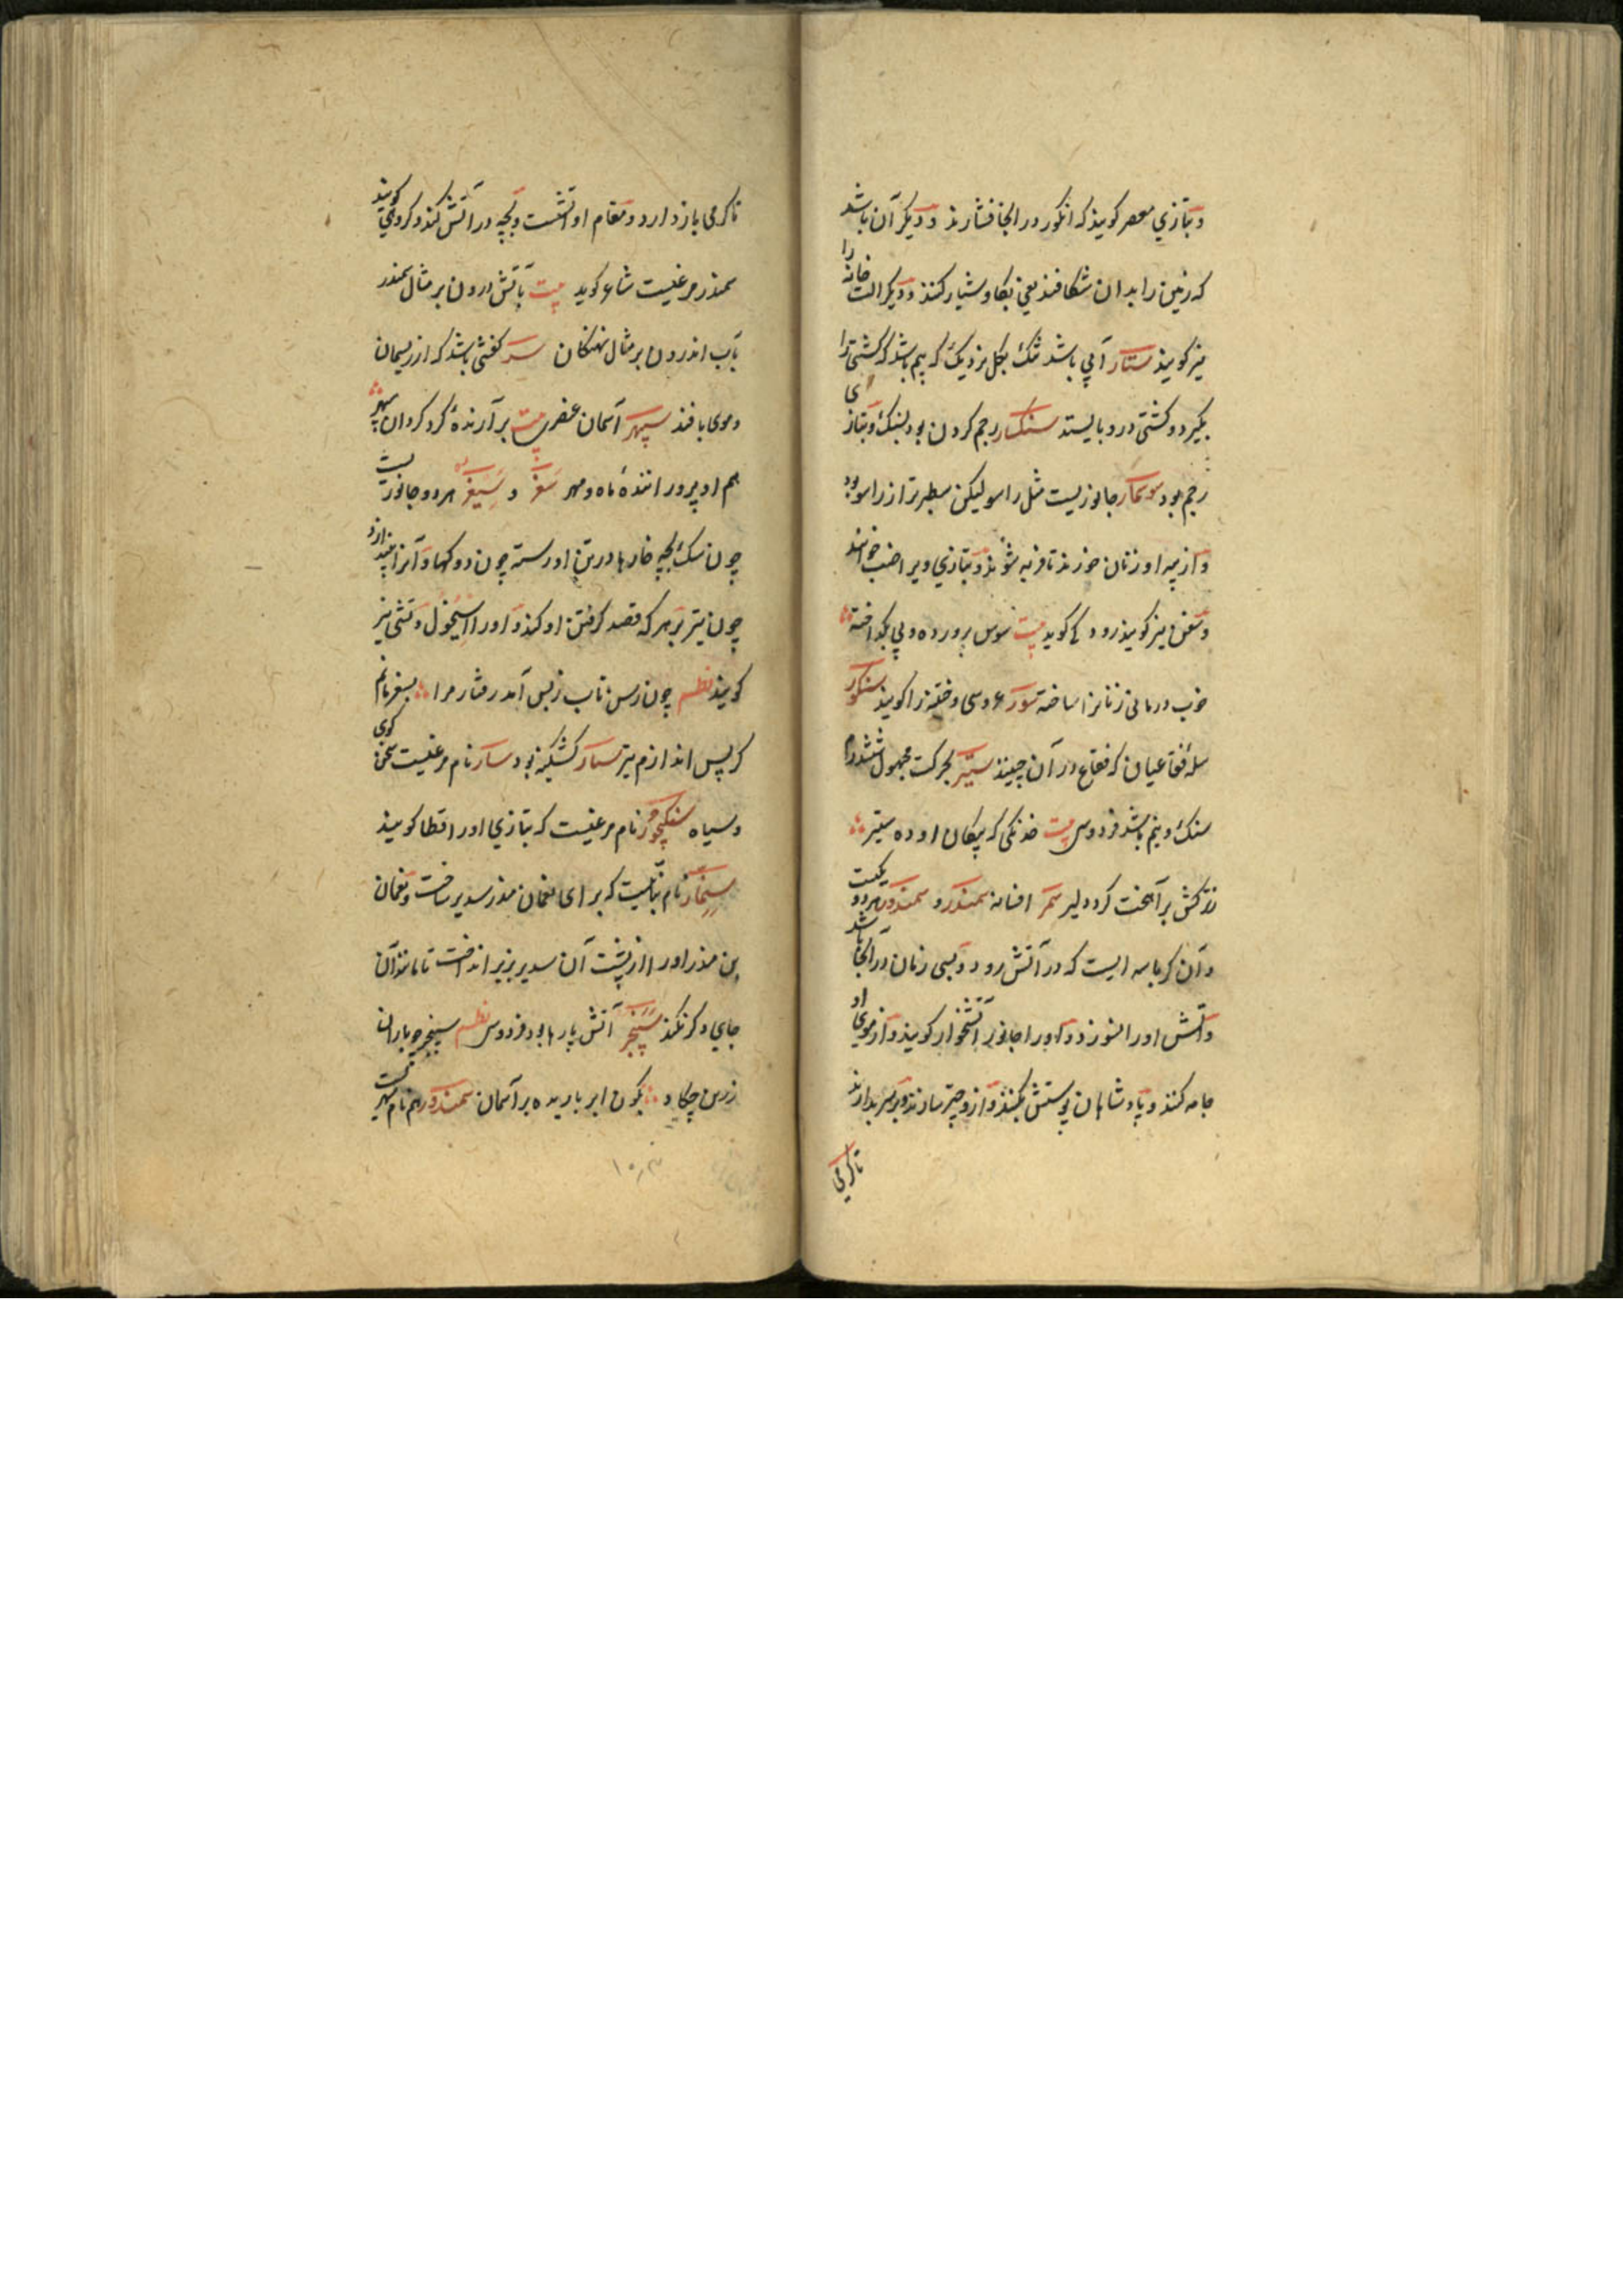 وبتازي معصر کویند که انکور در انجا فشارند ودیکر آن باشد
که زمین را بدان شکافند یعنی بکاو شیار کنند ودیکر الت خانه را
نیز کویند ستار آبی باشد تنک بکل نزدیک که بیم باشد که کشتی را
بکیرد وکشتی درو بایستد سنکسار رجم کردن بود بسنک وبتازی
رجم بود سوسمار جانوریست مثل راسو لیکن سطبرتر از راسو بود
واز پیه او زنان خورند تا فربه شوند وبتازي ویرا ضب خوانند
وسقن نیز کویند رودکی کوید بیت سوس پرورده وپی بکداخته
خوب درمانی زنانرا ساخته سور عروسی وختنه را کویند سنکور
سله فقاعیان که فقاع در آن چینند ستیر بحرکت مجهول شش درم
سنک ونیم باشد فردوسی بیت خدنکی که پیکان او ده ستیر
زترکش برآهخت کرد دلیر سمر افسانه سمندر و سمندور هر دو یکیست
وآن کرباسه ایست که در آتش رود وبسی زمان در انجا باشد
وآتش اورا نسوزد واورا جانور آتشخوار کویند واز موی او
جامه کنند وپادشاهان پوستش بکنند وازو چتر سازند وبر سر بدارند
تا کرمی
تا کرمی باز دارد ومقام او آتشست وبچه در آتش کند وکروهی کویند
سمندر مرغیست شاعر کوید بیت بآتش درون بر مثال سمندر
بآب اندرون بر مثال نهنکان سر کفشی باشد که از ریسمان
وموی بافند سپهر آسمان عنصری بیت برآرندهٔ کرد کردان سپهر
هم او پرورانندهٔ ماه ومهر سغر و سیغر هر دو جانوریست
چون سک بچه خارها در تن او رسته چون دوکها وآنرا بیندازد
چون تیر بر هر که قصد کرفتن او کند واورا اسیخول وتشی نیز
کویند نظم چون رسن تاب ز پس آمد رفتار مرا بسغر مانم
کز پس اندازم تیر سمار کشکینه بود سار نام مرغیست سخن کوی
وسیاه سنکخور نام مرغیست که بتازي اورا قطا کویند
سنمار نام بنائیست که برای نعمان منذر سدیر ساخت ونعمان
بن منذر اورا از پشت آن سدیر بزیر انداخت تا مانند آن
جاي دکر نکند سپنجر آتش پارها بود فردوسی نظم سپنجر چو باران
زرین چکاد بکون ابر باریده بر آسمان سمندور هم نام شهریست